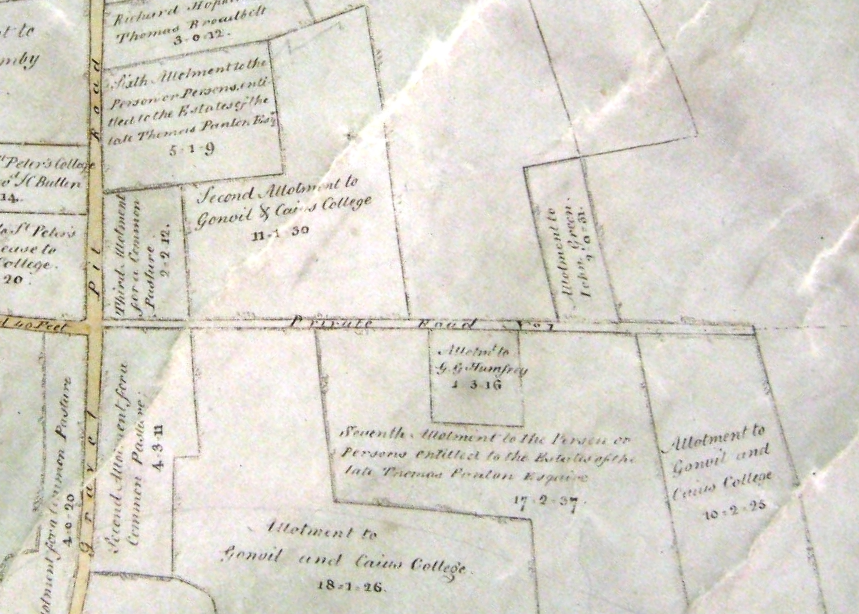 Richard Hopk
Thomas Broadbelt
3=0=12.
t to
mby
Sixth Allotment to the
Person or Persons, enti-
tled to the Estates of the
late Thomas Panton Esqr.
5-1-9
t Peter's College
to St. Butler
14.
to St. Peter's
ease to
College.
20.
Second Allotment to
Gonvil & Caius College
11-1-30
Third Allotment
for a Common
Pasture
2-2-12.
Allotment to
John Green.
2-0-31.
Gravel Pit Road
40 Feet
Private Road No. 1
Allotmt. to
G.G. Humfrey
1-3-16
Seventh Allotment to the Person or
Persons entitled to the Estates of the
late Thomas Panton Esquire
17-2-37.
Allotment to
Gonvil and
Caius College
10-2-25
Second Allotment for a
Common Pasture
4-3-11
otment for a Common Pasture
4-0-20
Allotment to
Gonvil and Caius College.
18-1-26.